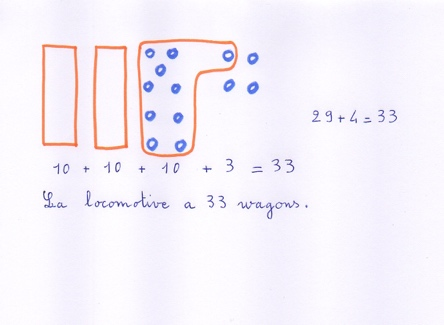 29+4=33
10 + 10 + 10 + 3 = 33
La locomotive a 33 wagons.